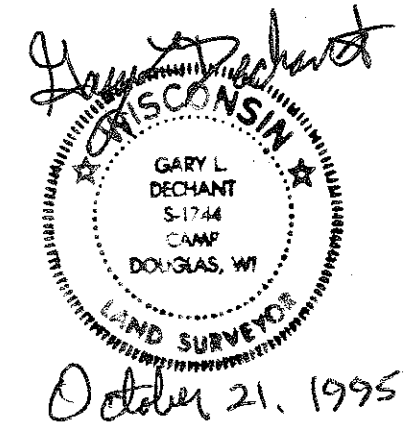 Gary L Dechant
WISCONSIN
GARY L.
DECHANT
S-1744
CAMP
DOUGLAS, WI
LAND SURVEYOR
October 21, 1995